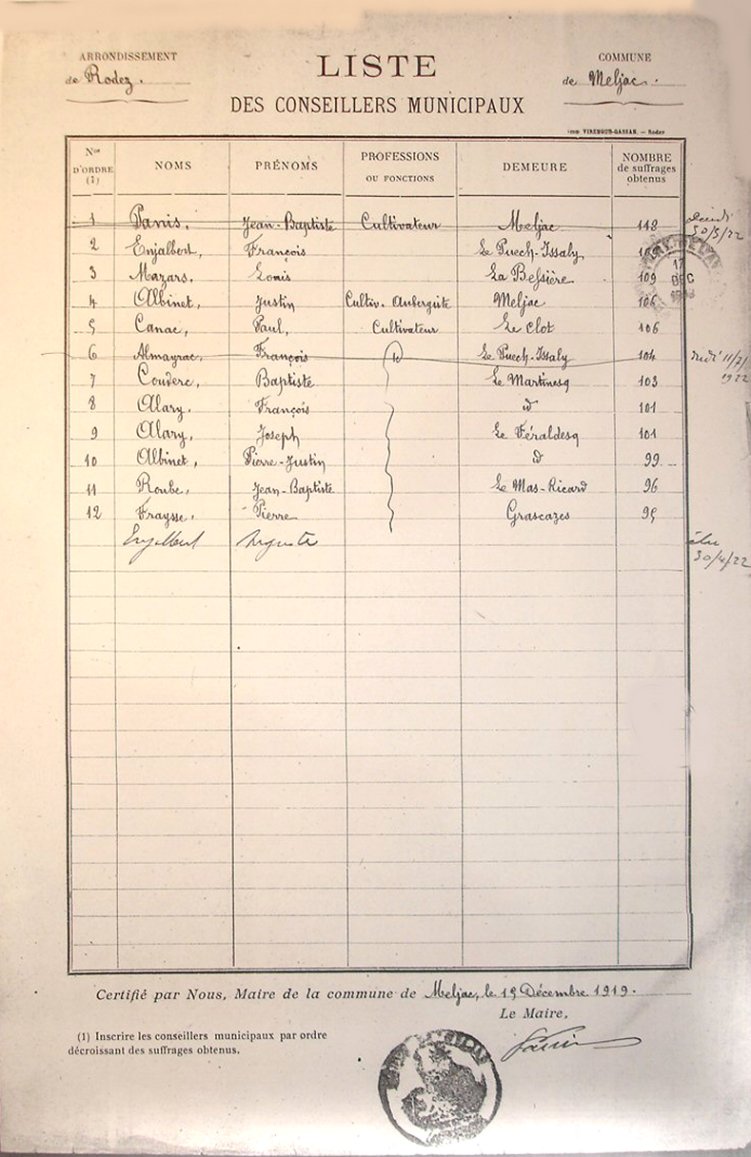 ARRONDISSEMENT
de Rodez.
LISTE
COMMUNE
de Meljac.
DES CONSEILLERS MUNICIPAUX
Imp. VIRENQUE-GASSAN. — Rodez
Nos D'ORDRE (1) NOMS PRÉNOMS PROFESSIONS OU FONCTIONS DEMEURE NOMBRE de suffrages obtenus
1 Panis, Jean-Baptiste Cultivateur Meljac 118
30/3/22
2 Enjalbert, François Le Puech-Issaly
3 Mazars, Louis La Bessière 109
4 Albinet, Justin Cultiv. Aubergiste Meljac 106
5 Canac, Paul, Cultivateur Le Clot 106
6 Almayrac, François id Le Puech-Issaly 104
11/7/1922
7 Couderc, Baptiste Le Martinesq 103
8 Alary, François id 101
9 Alary, Joseph Le Féraldesq 101
10 Albinet, Pierre-Justin id 99
11 Roube, Jean-Baptiste Le Mas-Ricard 96
12 Fraysse, Pierre Grascazes 95
Enjalbert Auguste
élu
30/4/22
17
DEC
Certifié par Nous, Maire de la commune de Meljac, le 15 Décembre 1919.
Le Maire,
(1) Inscrire les conseillers municipaux par ordre
décroissant des suffrages obtenus.
Panis